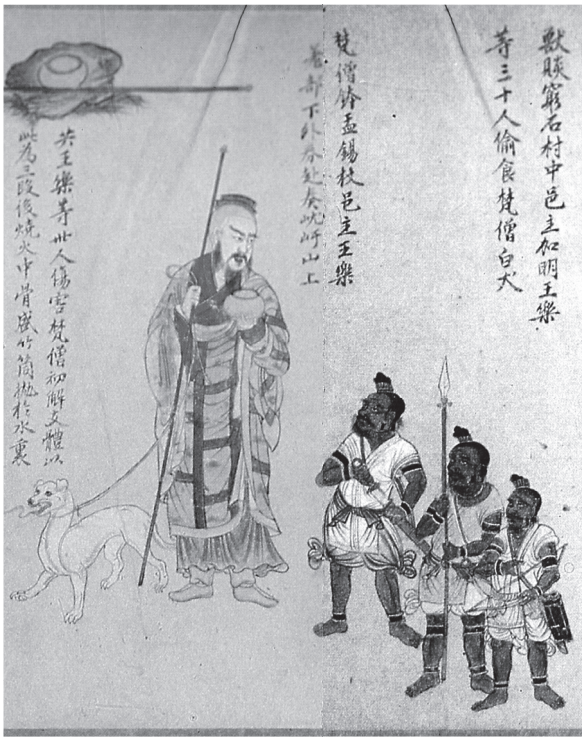 獸賧窮石村中邑主加明王樂
等三十人偷食梵僧白犬
梵僧鉢盂錫杖邑主王樂
著部下外券赴奏山上
其王樂等卅人傷害梵僧初解支體以
此為三段後燒火中骨盛竹筒拋於水裏